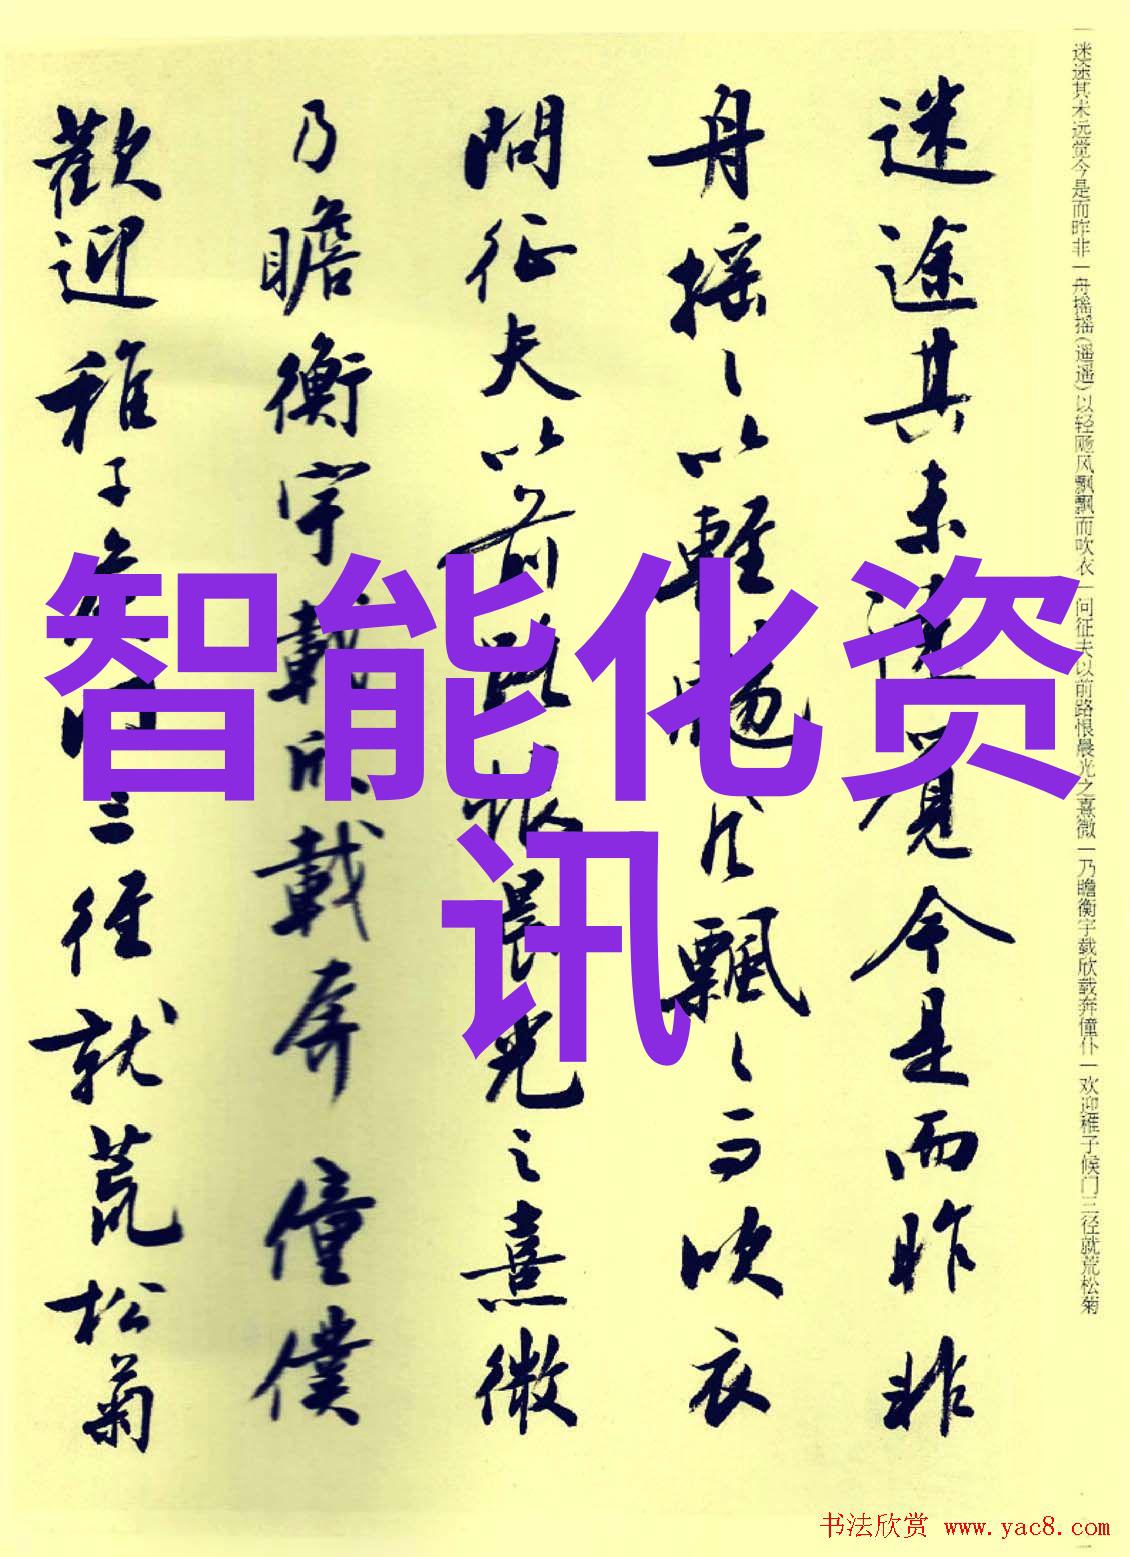 迷途其未遠覺今是而昨非
舟摇〻以輕颺風飄〻而吹衣
問征夫以前路恨晨光之熹微
乃瞻衡宇載欣載奔僮僕
歡迎稚子候門三徑就荒松菊
一迷途其未远觉今是而昨非一舟摇摇(遥遥)以轻飏风飘飘而吹衣一问征夫以前路恨晨光之熹微一乃瞻衡宇载欣载奔僮仆一欢迎稚子候门三径就荒松菊
智能化资
讯
书法欣赏 www.yac8.com